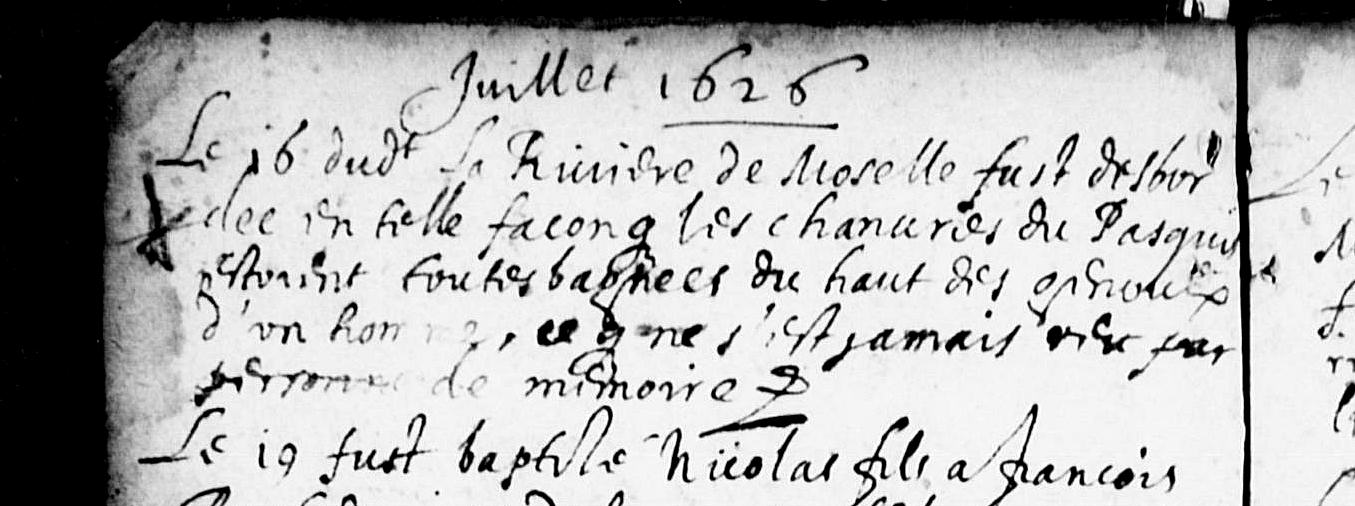 Juillet 1626
Le 16 dudt la Riuiere de Moselle fust desbor
dee en telle facon q les chanuries du Pasquis
estoient toutes bagnees du haut des genoulx
d'vn homme, ce q ne s'est jamais veu par
personne de memoire
Le 19 fust baptisé Nicolas fils a francois